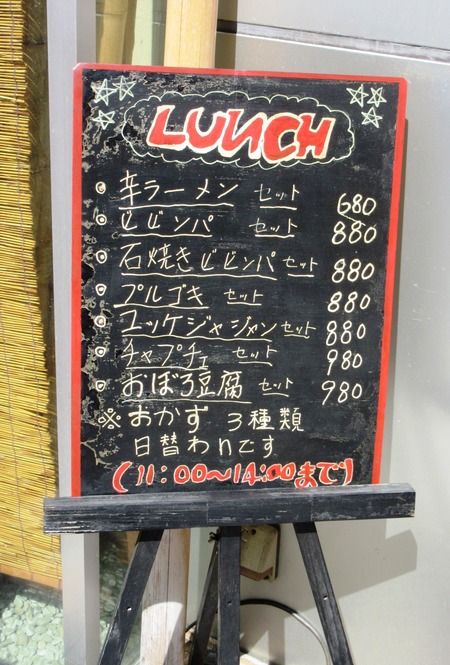 LUNCH
辛ラーメン セット 680
ビビンパ セット 880
石焼きビビンパ セット 880
プルゴキ セット 880
ユッケジャジャン セット 880
チャプチェ セット 980
おぼろ豆腐 セット 980
※おかず 3種類
日替わりです
(11:00〜14:00まで)